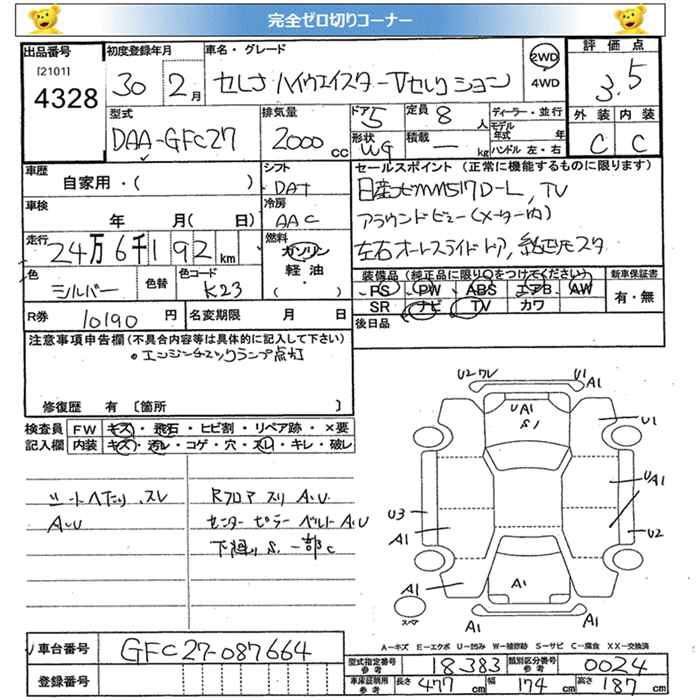 完全ゼロ切りコーナー
出品番号 初度登録年月 車名・グレード 2WD 評価点
[2101] 4328 30 2月 セレナ ハイウェイスターVセレクション 4WD 3.5
型式 排気量 ドア 定員 ディーラー・並行 外装 内装
DAA-GFC27 2000cc 5 8人 モデル年式 年 C C
形状 WG 積載 ー kg ハンドル 左・右
車歴 シフト セールスポイント (正常に機能するものに限ります)
自家用・( ) DAT 日産ナビMM517D-L, TV
車検 冷房 アラウンドビュー(メーター内)
年 月( 日) AAC 左右オートスライドドア, 純正Rスタ
走行 燃料
24万6千192km ガソリン 軽油・( )
色 色替 色コード 装備品(純正品に限り○をつけてください) 新車保証書
シルバー K23 PS PW ABS エアB AW 有・無
SR ナビ TV カワ
R券 10190円 名変期限 月 日 後日品
注意事項申告欄(不具合内容等は具体的に記入して下さい)
・エンジンチェックランプ点灯
修復歴 有 〔箇所 〕
検査員 FW キズ・飛石・ヒビ割・リペア跡・×要
記入欄 内装 キズ・汚レ・コゲ・穴・スレ・キレ・破レ
シートヘたり、スレ RフロアスリA.U.
A.U センターピラーベルトA.U
下廻りS.一部C
U2 ワレ U1 A1
UA1
S1
U1
UA1
U3
U2
A1
A1
A1
スペア
A1 A1
A-キズ E-エクボ U-凹み W-補修跡 S-サビ C-腐食 XX-交換済
車台番号 GFC27-087664
型式指定番号 参考 18383 類別区分番号 参考 0024
登録番号 車庫証明用 参考 長さ 477 幅 174 高さ 187